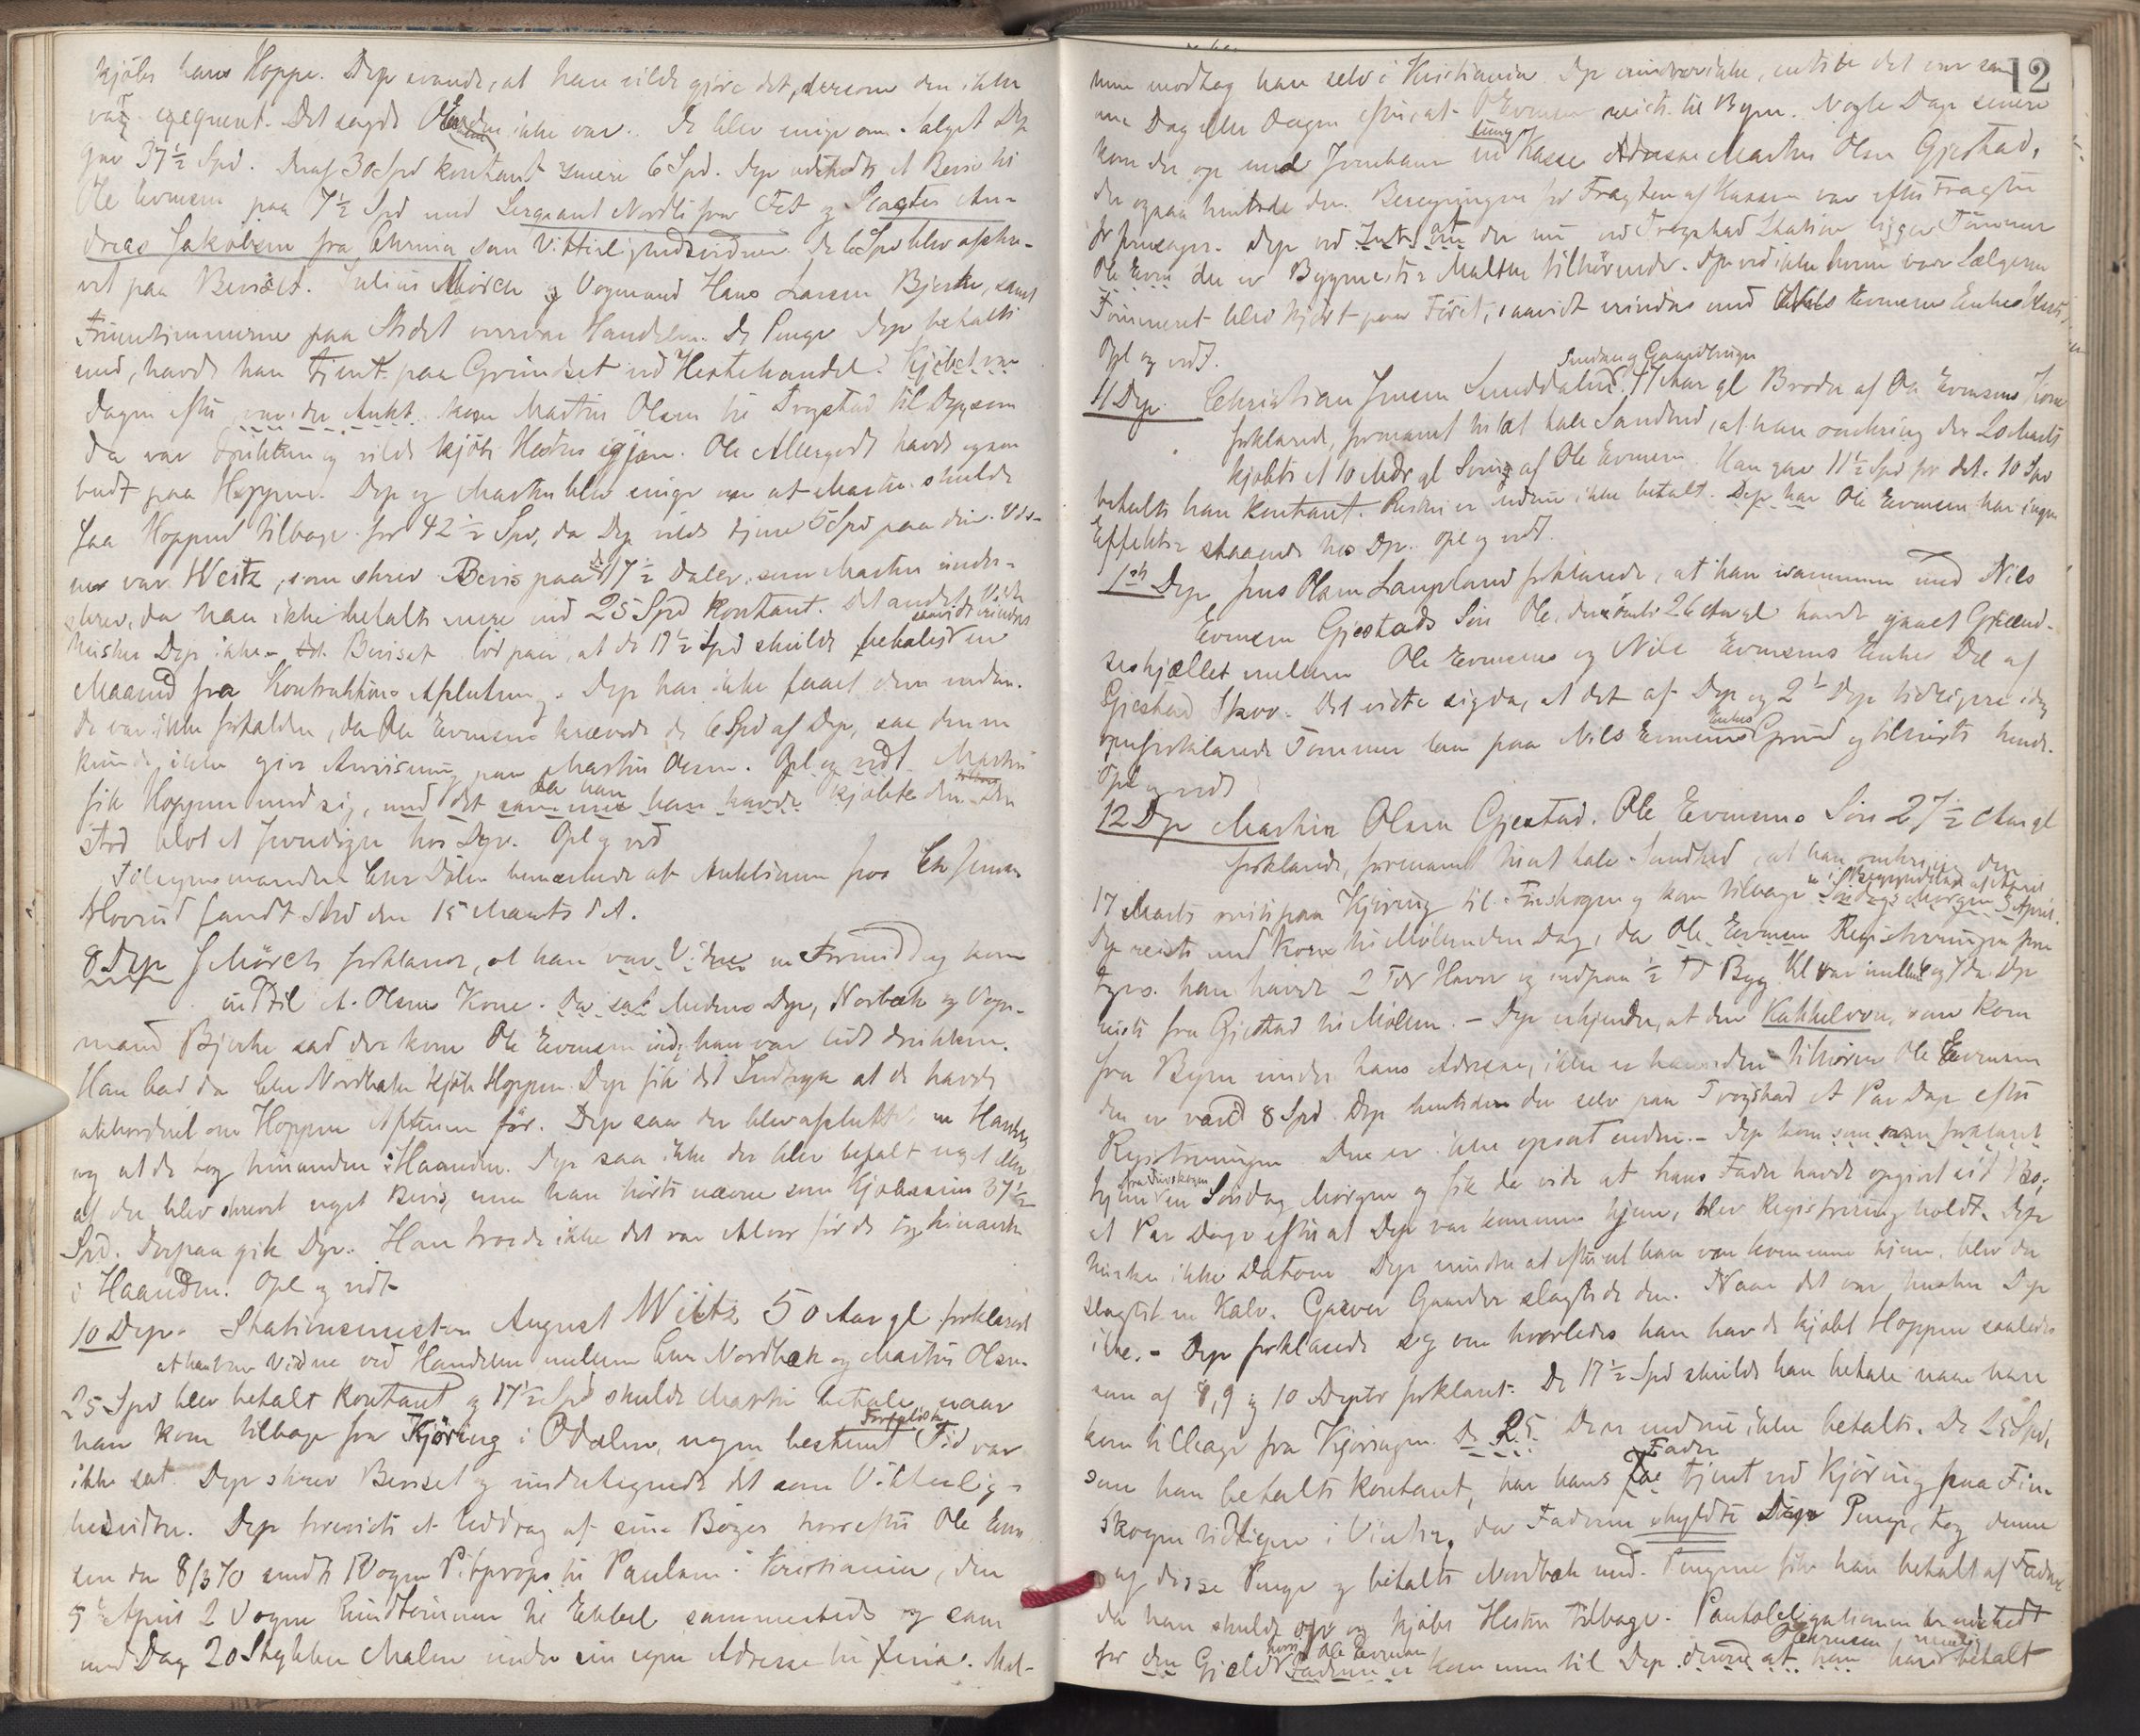 kjøbe hans Hoppe. Dep svarede, at han vilde gjøre det, dersom den ikke
var exequeret. Det sagde Ole Evensen ikke var. De blev enige om Salget Dep
gav 37½ Spd. Deraf 30 Spd kontant senere 6 Spd. Dep udstedte et Bevis til
Ole Evensen paa 7½ Spd med Sergeant Nordli fra Fet og Slagter An-
dreas Jakobsen fra Chrania som Vitterlighedsvidner. De 6 Spd blev afskre-
vet paa Beviset. Julius Mörch og Vognmand Hans Larsen Bjerke, samt
Fruentimmerne paa Stedet overvar Handelen. De Penge Dep betalte
med, havde han tjent paa Grundset ved Hestehandel. Kjøbet var
Dagen efter var der Aukt. kom Martin Olsen til Trogstad til Dep som
da var drukken og vilde kjøbe Hesten igjen. Ole Allergodt havde ogsaa
budt paa Hoppen. Dep og Martin blev enige om at Martin skulde
faa Hoppen tilbage for 42½ Spd, da Dep vilde tjene 5 Spd paa den. Vid-
ner var Weitz, som skrev Bevis paa de 17½ Daler, som Martin under-
skrev, da han ikke betalte mere end 25 Spd kontant. Det andet Vidne
husker Dep ikke. Beviset lød paa, at de 17½ Spd skulde betales saavidt erindres en
Maaned fra Kontraktens Afslutning. Dep har ikke faaet dem endnu.
De var ikke forfalden, da Ole Evensen krævede de 6 Spd af Dep, saa denne
kunde ikke give Anvisning paa Martin Olsen. Opl og vedt. Martin
fik Hoppen med sig, med det samme da han havde kjøbte den. Den
stod blot et Par Dage hos Dep. Opl og ved
Tilsynsmanden Chr Dölen bemærkede at Auktionen hos Chr Jensen
Hovrud fandt Sted den 15 Marts d A.
8 Dep J Mörch forklarer, at han var Vidne en Formiddag kom
ind til A. Olsens Kone. Da sat Anders Dep, Norbæk og Vogn-
mand Bjerke sad der kom Ole Evensen ind, han var lidt drukken.
Han bad da Chr Nordbæk kjøbe Hoppen. Dep fik det Indtryk at de havde
akkorderet om Hoppen Aftenen før. Dep saa der blev afsluttet en Handel
og at de tog hinanden i Haanden. Dep saa ikke der blev betalt noget eller
at der blev skrevet noget Bevis, men han hørte nævne som Kjøbesum 37½
Spd. Derpaa gik Dep. Han troede ikke det var Alvor før de tog hinanden
i Haanden. Opl og vedt
10 Dep. Stationsmester August Weitz 50 Aar gl forklaret
at han var Vidne ved Handelen mellem Chr Nordbæk og Martin Olsen.
25 Spd blev betalt kontant og 17½ Spd skulde Martin betale, naar
han kom tilbage fra Kjöring i Odalen, nogen bestemt Forfalds Tid var
ikke sat. Dep skrev Beviset og undertegnede det som Vitterlig-
hedsvidne. Dep foreviste et Uddrag af sine Bøger hvorefter Ole Even-
sen den 8/3 70 sendte 1 Vogn Pitprops til Paulsen i Kristiania, den
5 April 2 Vogne Rundtömmer til Ekkel sammesteds og sam
med Dag 20 Stykker Malm under sin egen Adresse til Xania. Mal-
12
men modtog han selv i Kristiania. Dep erindrer ikke, enten det var sam
me Dag eller Dagen efter, at O Evensen reiste til Byen. Nogle Dage senere
kom der op med Jernbanen en tung Kasse Adresse Martin Olsen Gjestad,
der ogsaa hentede den. Beregningen for Fragten af Kassen var efter Fragten
for Jernsager. Dep ved Intet om der nu ved Trogstad Station ligger Tömmer
Ole Even der er Bygmester Malthe tilhørende. Dep ved ikke hvem var Sælgeren
Tömmeret blev kjørt paa Föret, saavidt erindres med Nils Evensens Enkes Hest
Opl og vedt.
11 Dep Christian Jensen Sunddalen Svedang Gaardbruger 47 Aar gl Broder af Ole Evensens Kone
forklarede, formanet til at tale Sandhed, at han omkring den 20 Marts
kjøbte et 10 Mdr gl Sviin af Ole Evensen. Han gav 11½ Spd for det. 10 Spd
betalte han kontant. Resten er endnu ikke betalt. Dep har Ole Evensen har ingen
Effekter staaende hos Dep. Opl og vedt.
1ste Dep Jens Olsen Laupland forklarede, at han sammen med Nils
Evensen Gjestads Sön Ole, 26 Aar gl havde gjaaet Grænd-
seskjællet mellem Ole Evensens og Nils Evensens Enkes Del af
Gjestad Skov. Det viste sig da, at det af Dep og 2 Dep tidligere idag
omforklarede Tømmer laa paa Nils Evensens Enkes Grund og tilhørte hende.
Opl og vedt
12 Dep Martin Olsen Gjestad. Ole Evensens Sön 27½ Aar gl
forklarede, formanet til at tale Sandhed, at han omkring den
17 Marts reiste paa Kjøring til Finskogen og kom tilbage en i Begyndelsen af April Söndags Morgen 3 April.
Dep reiste med Korn til Møllen den Dag, da Ole Evensen Registreringen fore
toges. han havde 2 Tdr Havre og endpaa ½ Td Byg. Kl var mellem 6 og 7 da Dep
reiste fra Gjestad til Møllen. – Dep erkjender, at den Kakkelovn, som kom
fra Byen under hans Adresse, ikke er hans den tilhører Ole Evensen
den er værd 8 Spd. Dep hentede den selv paa Trogstad et Par Dage efter
Registreringen. Den er ikke opsat endnu. – Dep kom som oven forklaret
hjem fra Finskogen en Söndag Morgen og fik da vide at hans Fader havde opgivet sit Bo;
et Par Dage efter at Dep var kommen hjem, blev Registrering holdt. Dep
husker ikke Datoen. Dep mindes at efter at han var kommen hjem, blev der
slagtet en Kalv. Garver Gaarder slagtede den. Naar det var, husker Dep
ikke. – Dep forklarede sig om hvorledes han havde kjøbt Hoppen saaledes
som af 8, 9 og 10 Depter forklaret. De 17½ Spd skulde han betale naar han
kom tilbage fra Kjøringen. De 25 De er endnu ikke betalt. De 25 Spd,
som han betalte kontant, har hans Fader tjent ved Kjøring paa Fin-
skogen tidligere i Vinter, da Faderen skyldte Dep Penge, tog denne
af disse Penge og betalte Nordbæk med. Pengene fik han betalt af Faderen
da han skulde op og kjøbe Hesten tilbage. Pantobligationen er udstedt
for den Gjeld hvori Ole Evensen Faderen er kommen til Dep derved at han Ole Evensen har betalt